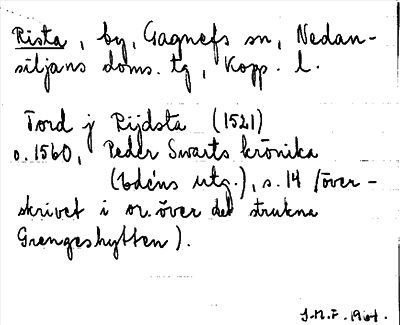 Rista, by, Gagnefs sn, Nedan-
siljans doms. tg, Kopp. l.
Tord j Rijdsta (1521)
o. 1560, Peder Swarts krönika
(Edéns utg.), s. 14 (över-
skrivet i or. över det strukna
Grengeshytten).
J.M.F. 1964.